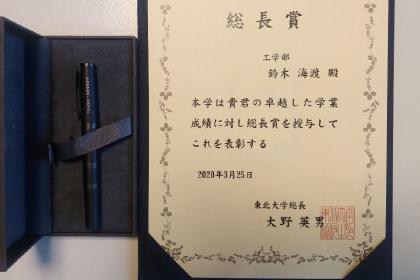 総長賞
工学部
鈴木 海渡 殿
本学は貴君の卓越した学業
成績に対し総長賞を授与して
これを表彰する
2020年3月25日
東北大学総長
大野 英男
TOHOKU UNIVERSITY